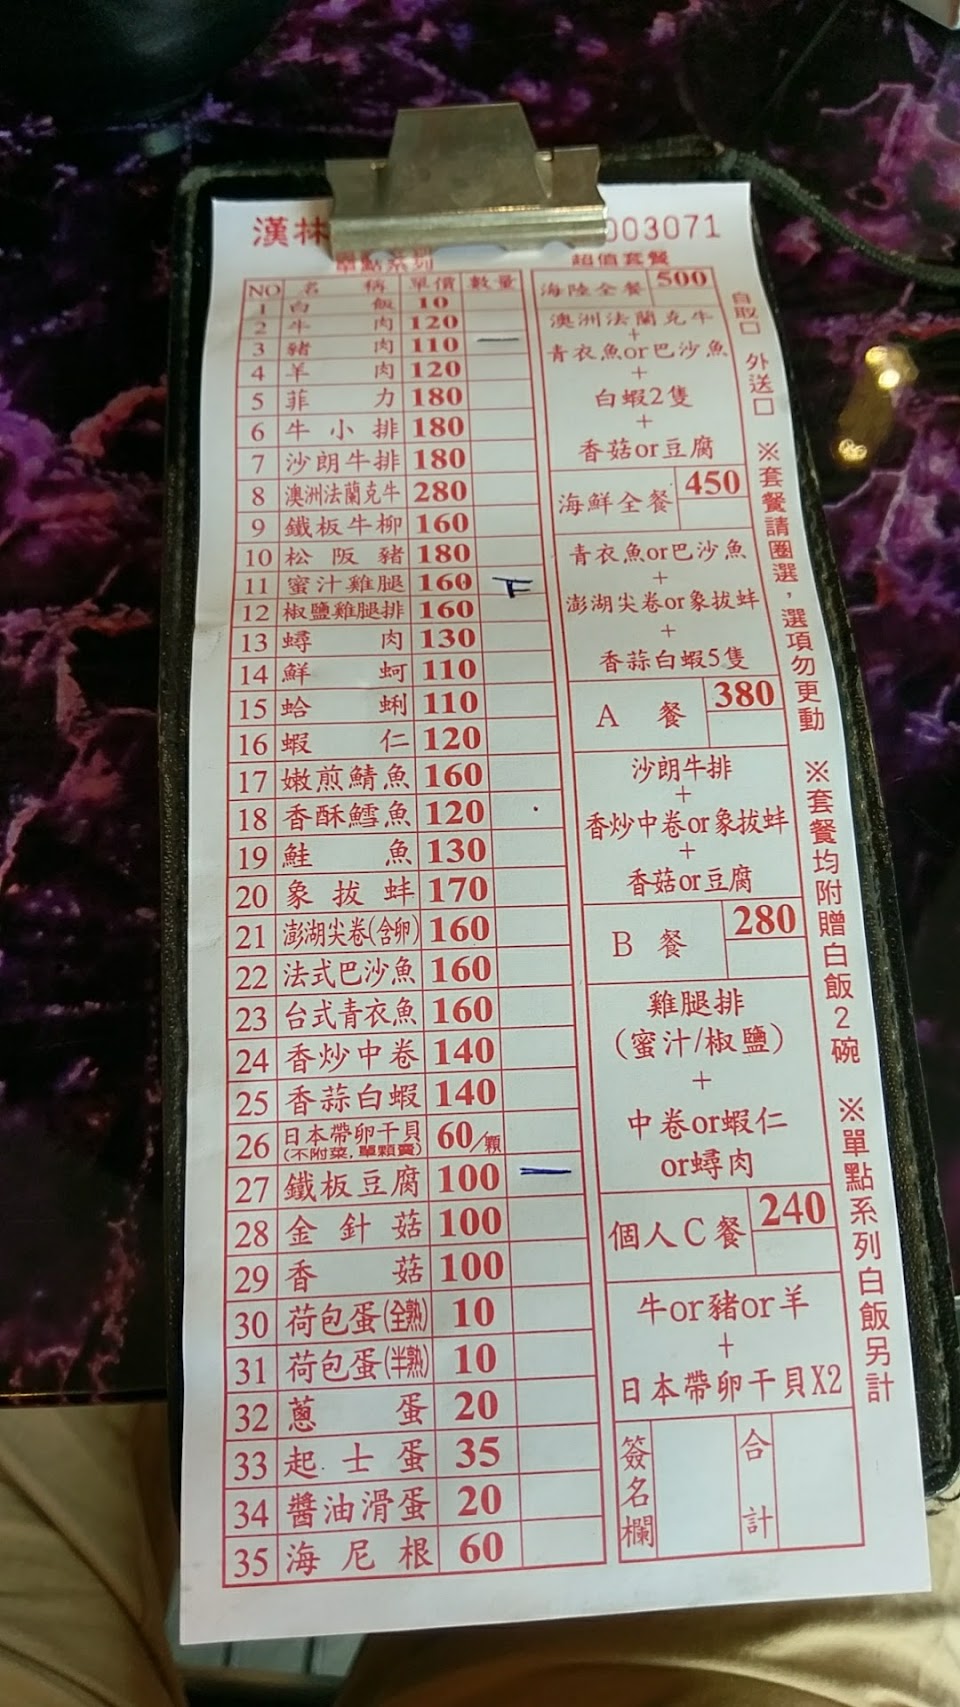 漢林
003071
單點系列
NO 名稱 單價 數量
1 白飯 10
2 牛肉 120
3 豬肉 110 一
4 羊肉 120
5 菲力 180
6 牛小排 180
7 沙朗牛排 180
8 澳洲法蘭克牛 280
9 鐵板牛柳 160
10 松阪豬 180
11 蜜汁雞腿 160 T
12 椒鹽雞腿排 160
13 蟳肉 130
14 鮮蚵 110
15 蛤蜊 110
16 蝦仁 120
17 嫩煎鯖魚 160
18 香酥鱈魚 120
19 鮭魚 130
20 象拔蚌 170
21 澎湖尖卷(含卵) 160
22 法式巴沙魚 160
23 台式青衣魚 160
24 香炒中卷 140
25 香蒜白蝦 140
26 日本帶卵干貝 60/顆
(不附菜,單顆賣)
27 鐵板豆腐 100 一
28 金針菇 100
29 香菇 100
30 荷包蛋(全熟) 10
31 荷包蛋(半熟) 10
32 蔥蛋 20
33 起士蛋 35
34 醬油滑蛋 20
35 海尼根 60
超值套餐
海陸全餐 500
澳洲法蘭克牛
+
青衣魚or巴沙魚
+
白蝦2隻
+
香菇or豆腐
海鮮全餐 450
青衣魚or巴沙魚
+
澎湖尖卷or象拔蚌
+
香蒜白蝦5隻
A餐 380
沙朗牛排
+
香炒中卷or象拔蚌
+
香菇or豆腐
B餐 280
雞腿排
(蜜汁/椒鹽)
+
中卷or蝦仁
or蟳肉
個人C餐 240
牛or豬or羊
+
日本帶卵干貝X2
簽名欄
合計
自取□ 外送□ ※套餐請圈選，選項勿更動 ※套餐均附贈白飯2碗 ※單點系列白飯另計